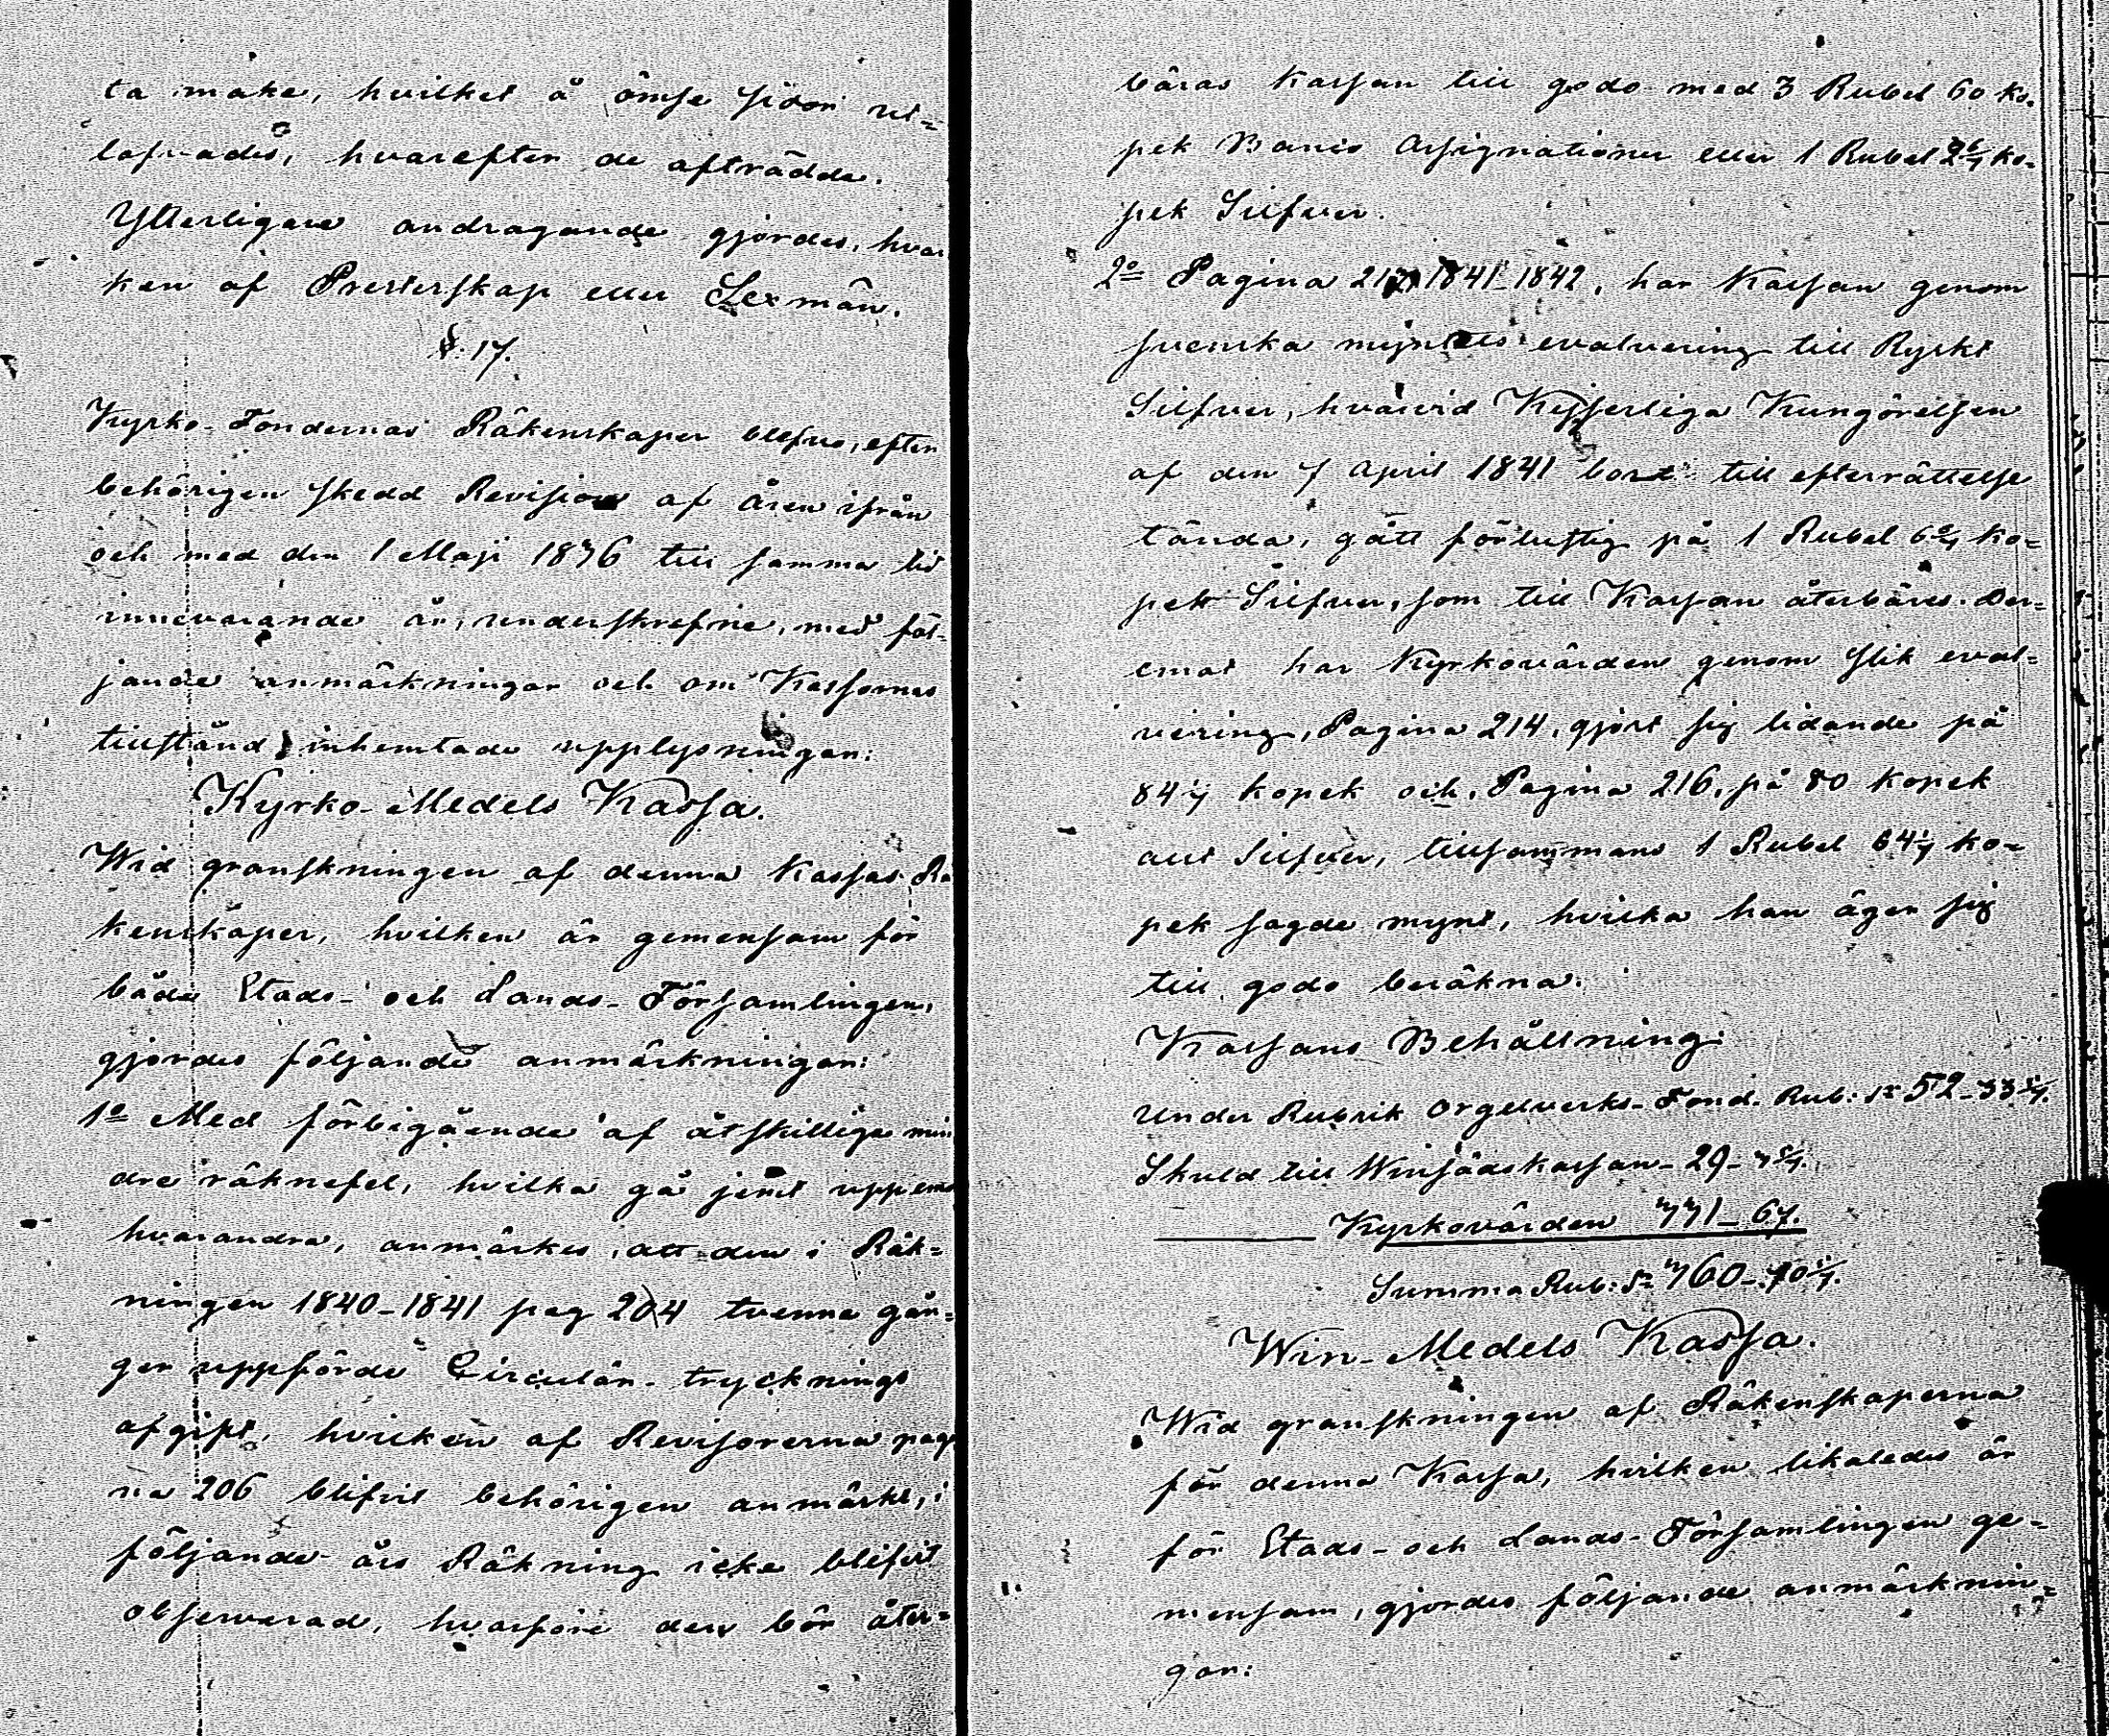 ta make, hvilket å ömse sidor ut=
lofvades, hvarefter de afträdde.
Ytterligare andragande gjordes, hvar
ken af Presterskap eller Sexmän.
§. 17.
Kyrko-Fondernas Räkenskaper blefvo, efter
behörigen skedd Revision af åren ifrån
och med den 1 Maji 1836 till samma tid
innevarande år, underskrefne, med föl-
jande anmärkningar och om Kassornas
tillstånd inhemtade upplysningar:
Kyrko-Medels Kassa.
Wid granskningen af denna Kassas Rä
kenskaper, hvilken är gemensam för
både Stads- och Lands-Församlingen,
gjordes följande anmärkningar:
1o Med förbigående af åtskillige min
dre räknefel, hvilka gå jemt upp emot
hvarandra, anmärkes, att den i Räk=
ningen 1840-1841 pag 204 tvenne gån=
ger uppförde Circulär-trycknings
afgift, hvilken af Revisorerna pagi
na 206 blifvit behörigen anmärkt, i
följande års Räkning icke blifvit
observerad, hvarföre den bör åter=
bäras Kassan till godo med 3 Rubel 60 ko.
pek Banco Assignationer eller 1 Rubel 2 6/7 ko-
pek Silfver.
2o Pagina 212 1841-1842, har Kassan genom
svenska myntets evalvering till Ryskt
Silfver, hvarvid Kejserliga Kungörelsen
af den 7 April 1841 bort till efterrättelse
tända, gått förlustig på 1 Rubel 6 2/7 ko=
pek Silfver, som till Kassan återbäres. Der=
emot har Kyrkovärden genom slik eval=
vering, Pagina 214, gjort sig lidande på
84 1/7 kopek och, Pagina 216, på 80 kopek
allt Silfver, tillsammans 1 Rubel 64 1/7 ko=
pek sagde mynt, hvilka han äger sig
till godo beräkna.
Kassans Behållning:
Under Rubrik Orgelverks-Fond. Rub: Sr 52-33 1/7.
Skuld till Winsädskassan - 29-3 5/7.
Kyrkovärden 331-67.
Summa Rub: Sr 360-70 1/7.
Win-Medels Kassa.
Wid granskningen af Räkenskaperna
för denna Kassa, hvilken likaledes är
för Stads- och Lands-Församlingen ge=
mensam, gjordes följande anmärknin=
gar: